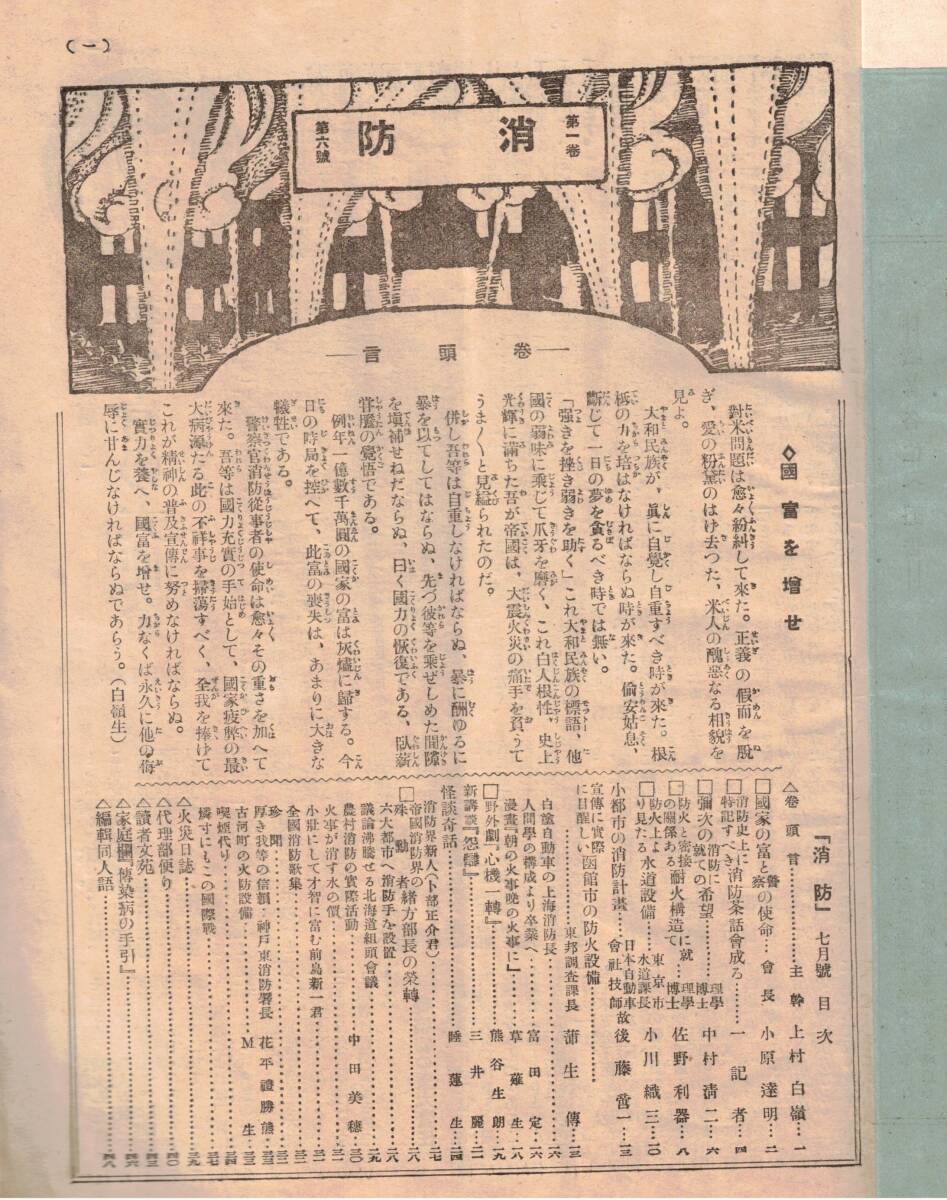 (一)
第一卷
消防
第六號
―卷頭言―
◇國富を增せ
對米問題は愈々紛糾して來た。正義の假面を脫
ぎ、愛の粉黛のはげ去つた、米人の醜惡なる相貌を
見よ。
大和民族が、眞に自覺し自重すべき時が來た。根
柢の力を培はなければならぬ時が來た。偷安姑息、
斷じて一日の夢を貪るべき時では無い。
「强きを挫き弱きを助く」これ大和民族の標語、他
國の弱味に乘じて爪牙を磨く、これ白人根性。史上
光輝に滿ちた吾が帝國は、大震火災の痛手を負うて
うま〱と見縊られたのだ。
併し吾等は自重しなければならぬ、暴に酬ゆるに
暴を以てしてはならぬ、先づ彼等を乘ぜしめた間隙
を塡補せねだならぬ、曰く國力の恢復である、臥薪
甞膽の覺悟である。
例年一億數千萬圓の國家の富は灰燼に歸する。今
日の時局を控へて、此富の喪失は、あまりに大きな
犧牲である。
警察官消防從事者の使命は愈々その重さを加へて
來た。吾等は國力充實の手始として、國家疲弊の最
大病源たる此の不祥事を掃蕩すべく、全我を捧げて
これが精神の普及宣傳に努めなければならぬ。
實力を養へ、國富を增せ。力なくば永久に他の侮
辱に甘んじなければならぬであらう。(白嶺生)
『消防』七月號目次
△卷頭言……主幹 上村白嶺…一
□國家の富と警察の使命…會長 小原達明…二
□消防史上に特記すべき消防茶話會成る……一記者…四
□彌次の消防に就ての希望……理學博士 中村淸二…六
□防火と密接の關係ある耐火構造に就て…理學博士 佐野利器…八
□防火上より見たる水道設備……東京市水道課長 小川織三…一〇
小都市の消防計畫…日本自動車會社技師 故後藤營一…一三
宣傳に實際に目醒しい函館市の防火設備……
……東邦調査課長 蒲生傳…一三
白塗自動車の上海消防長……一六
人間學の構成より卒業へ……富田定…一六
漫畫『朝の火事晚の火事に』……草薙生…一八
□野外劇『心機一轉』……熊谷生朗…一九
新講談『怨戀』……三井麗…二一
怪談奇話……睡蓮生…二四
消防界新人(下部正介君)……二七
□帝國消防界の殊勳者緒方部長の榮轉……二八
六大都市へ消防手を設置……二八
議論沸騰せる北海道組頭會議……二九
農村消防の實際活動……中田美穗…三〇
火事が消す水の價……三一
小壯にして才智に富む前島新一君……三一
全國消防歌集……三二
珍聞……三三
厚き我等の信賴…神戶東消防署長 花平禮勝熊…三三
古河町の火防設備……M生…三四
喫煙代り……三四
燐寸にもこの國際戰……三七
△火災日誌……三九
△代理部便り……四〇
△讀者文苑……四三
△家庭欄『傳染病の手引』……四六
△編輯同人語……四八